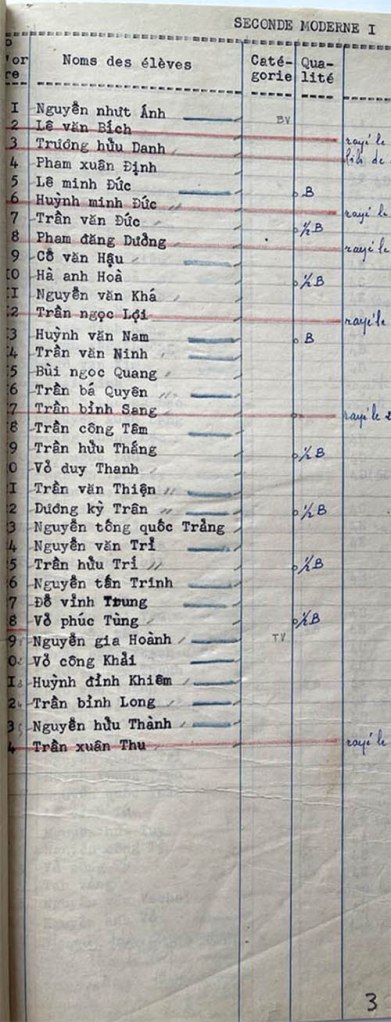 SECONDE MODERNE I
or Noms des élèves Caté- Qua-
re gorie lité
I Nguyễn nhựt Ánh BV
2 Lê văn Bích rayé le
3 Trương hữu Danh
4 Phạm xuân Định
5 Lê minh Đức B
6 Huỳnh minh Đức rayé le
7 Trần văn Đức ½B
8 Phạm đăng Dưởng rayé le
9 Cổ văn Hậu
I0 Hà anh Hoà ½B
II Nguyễn văn Khá
2 Trần ngọc Lợi rayé le
3 Huỳnh văn Nam B
4 Trần văn Ninh
5 Bùi ngọc Quang
6 Trần bá Quyên
7 Trần bỉnh Sang rayé le 2
8 Trần công Tâm
9 Trần hữu Thắng ½B
0 Võ duy Thanh
I Trần văn Thiện
2 Dương kỳ Trân ½B
3 Nguyễn tông quốc Trảng
4 Nguyễn văn Trỉ
5 Trần hữu Tri ½B
6 Nguyễn tấn Trinh
7 Đỗ vỉnh Trung
8 Võ phúc Tùng ½B
9 Nguyễn gia Hoành TV
0 Võ công Khải
I Huỳnh đỉnh Khiêm
2 Trần bỉnh Long
3 Nguyễn hữu Thành
4 Trần xuân Thu rayé le
3